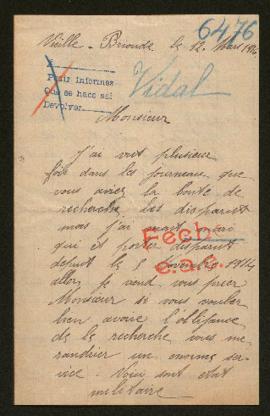 6476
Vieille-Brioude le 12 Mars 1916
Pedir informes
que se hace así
Devolver
Vidal
Monsieur
J'ai vut plusieur
fois dans les journeaux que
vous aviez la bonté de
recherche les disparut
mas j'ai mari
qui et porter disparut
Fech.
deput le 5 Novembre 1914
e.a.c.
allors je vend vous prier
Monsieur si vous voulez
bien avoir l'obligance
de le recherche vous me
randrier un enorme ser-
vice. Voici sont etat
militaire